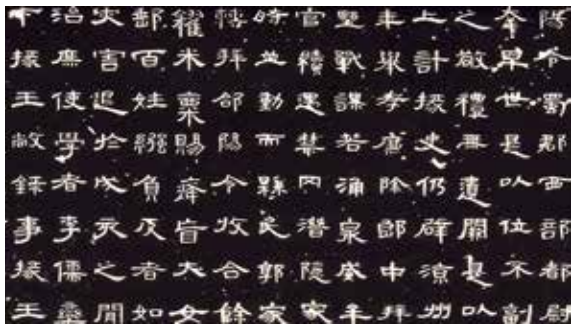 陽令蜀郡西部都尉
幸早世是以位不副
之敬禮無遺闕是以
上計掾史仍辟涼州
年舉孝廉除郎中拜
野戰謀若涌泉威牟
官續遇禁冈潛隱家
時並動而縣民郭家
轉拜郃陽令收合餘
糴米粟賜癃盲大女
郵百姓繈負反者如
災害退於戌亥之間
治廡使學者李儒欒
下掾王敞錄事掾王